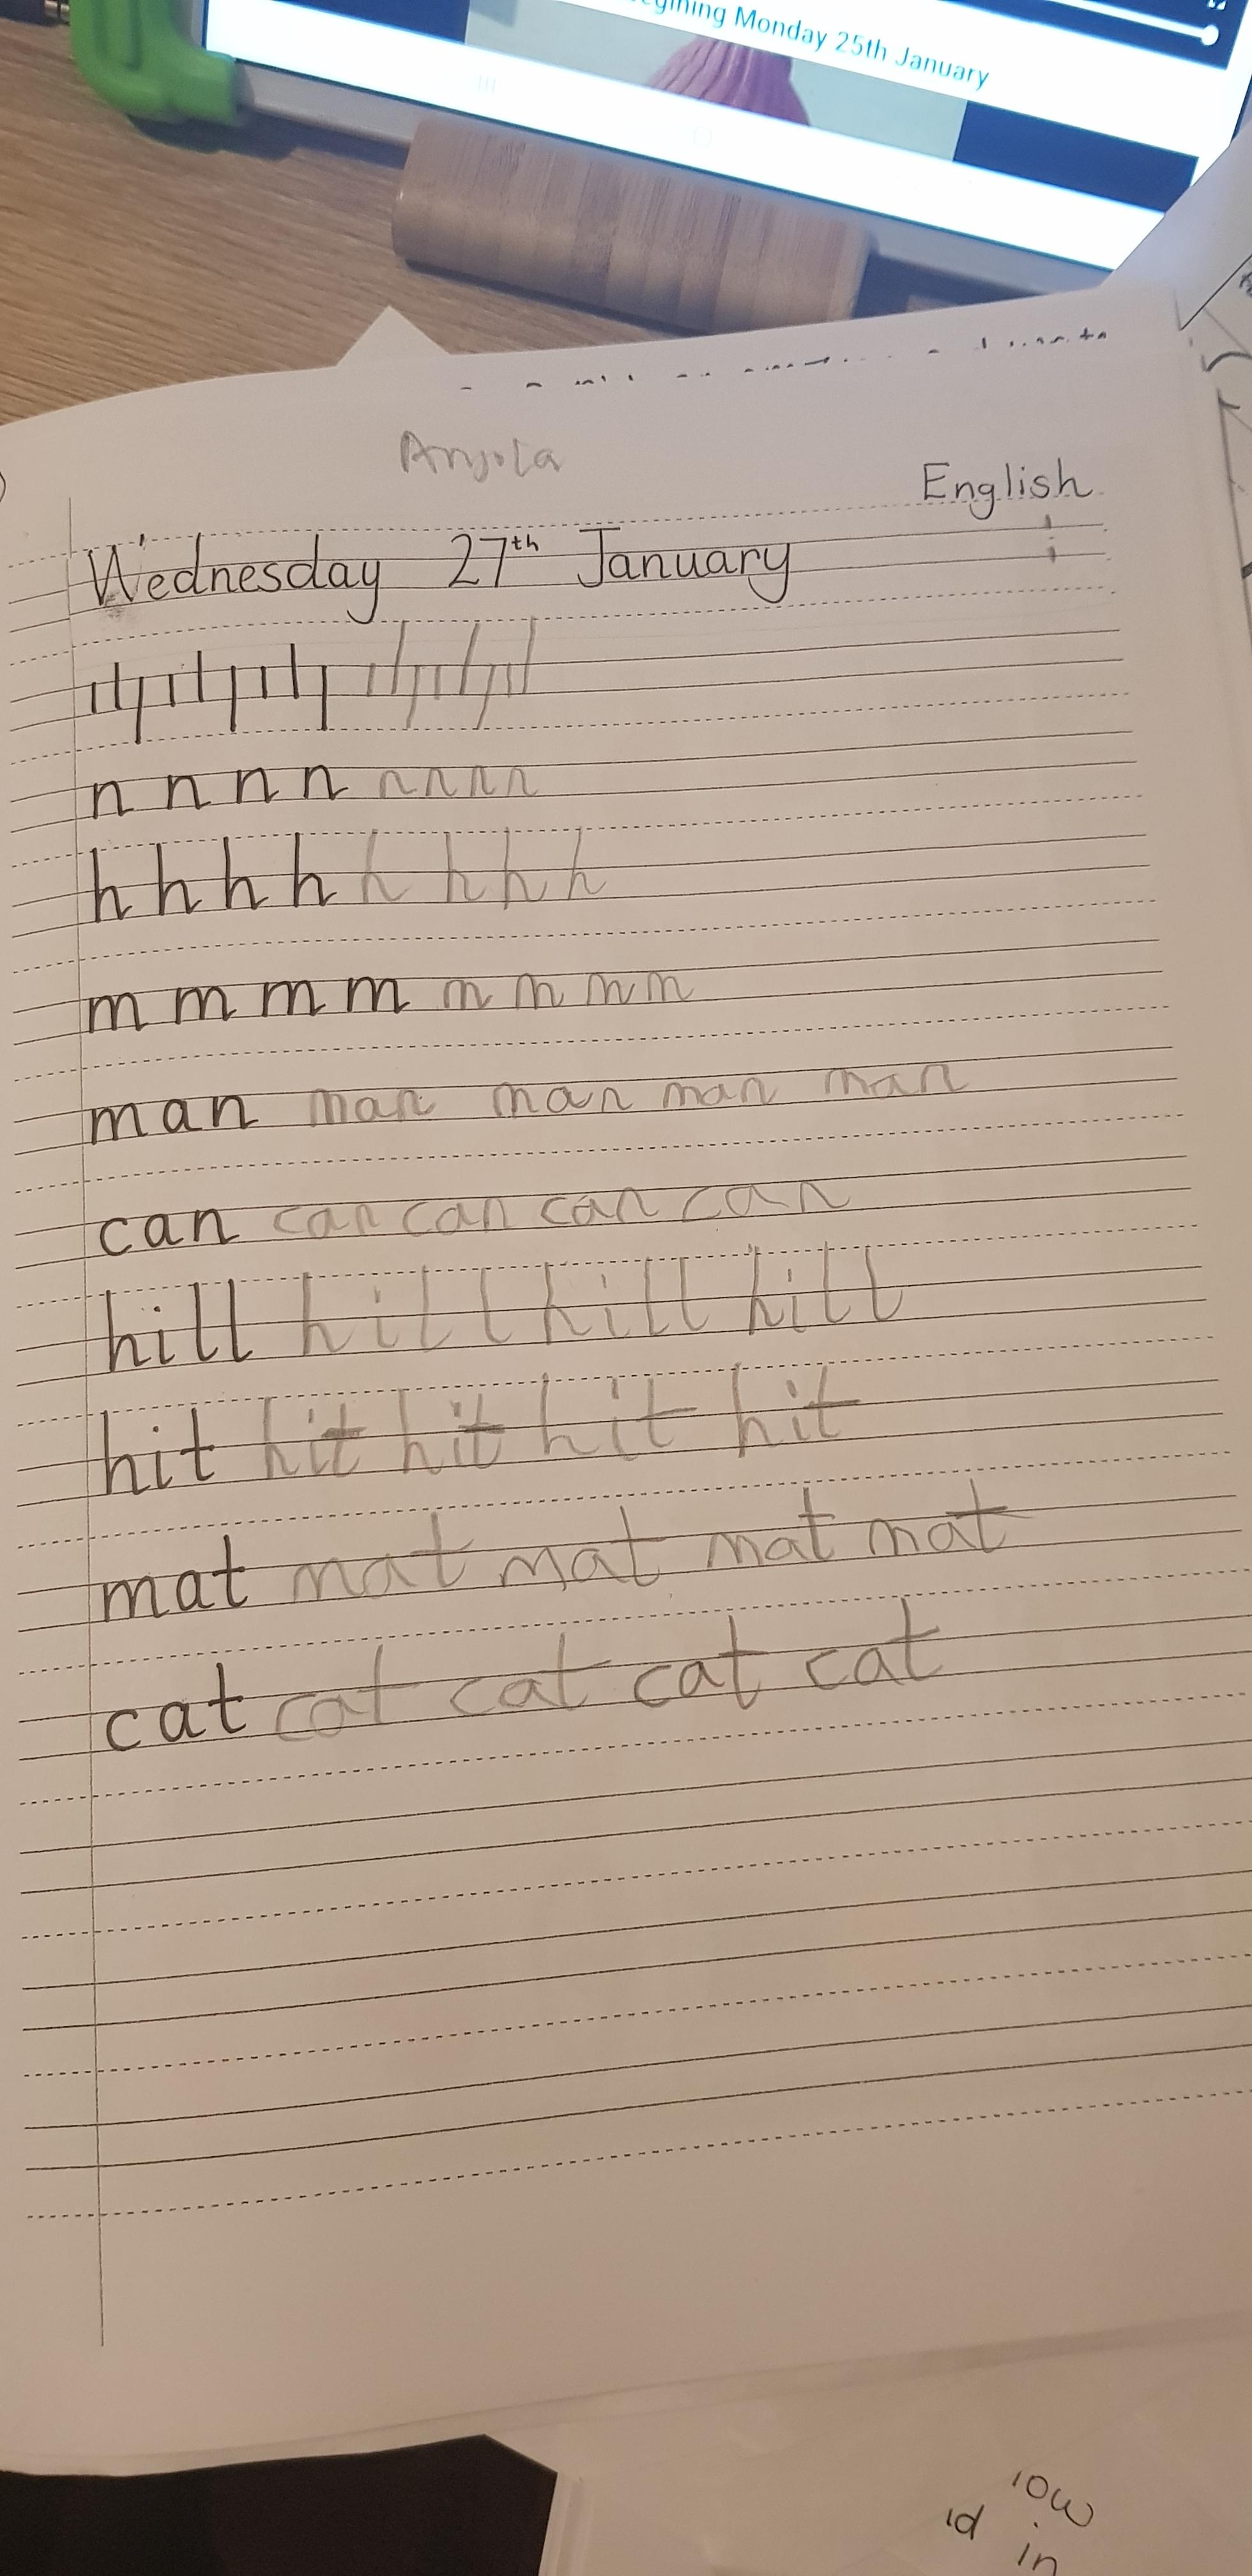 Monday 25th January
Anjola
English
Wednesday 27th January
n n n n n n n n
h h h h h h h h
m m m m m m m m
man man man man man
can can can can can
hill hill hill hill
hit hit hit hit hit
mat mat mat mat mat
cat cat cat cat cat
low
id in